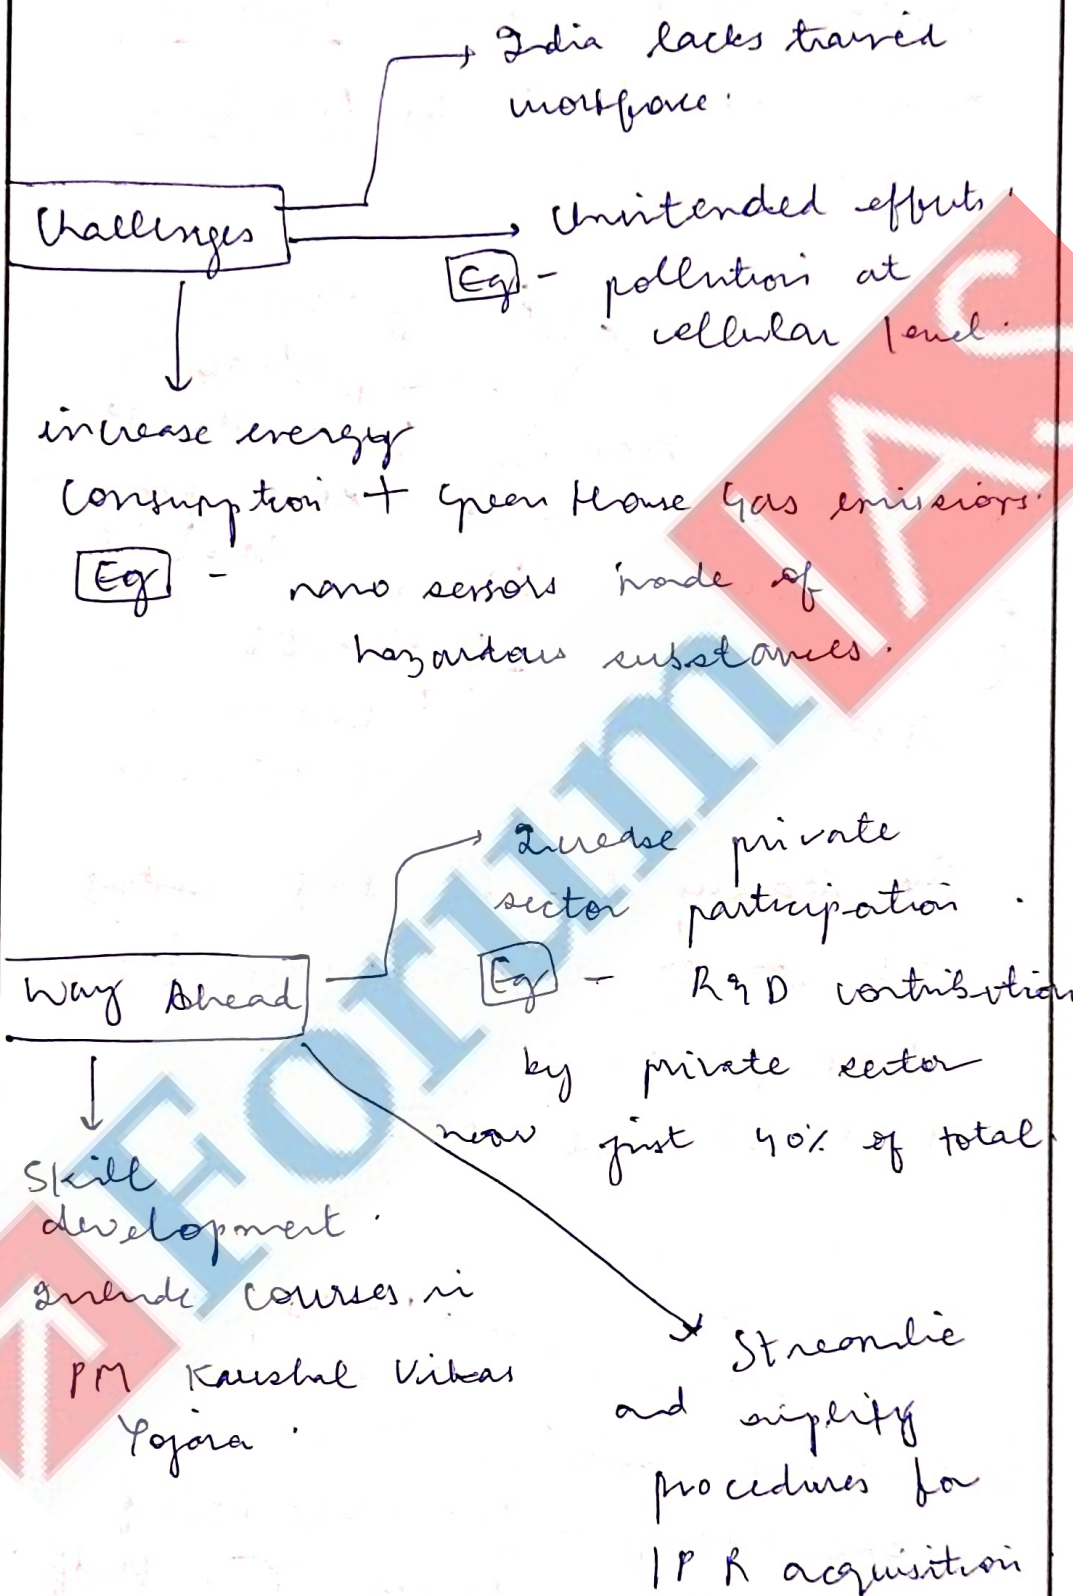 India lacks trained
workforce.
Challenges
Unintended effects.
Eg. - pollution at
cellular level.
increase energy
Consumption + Green House Gas emissions.
Eg - nano sensors made of
hazardous substances.
Increase private
sector participation.
Way Ahead
Eg - R&D contribution
by private sector
now just 40% of total
Skill
development.
Include courses in
PM Kaushal Vikas
Yojana.
Streamline
and simplify
procedures for
IPR acquisition
Forum IAS